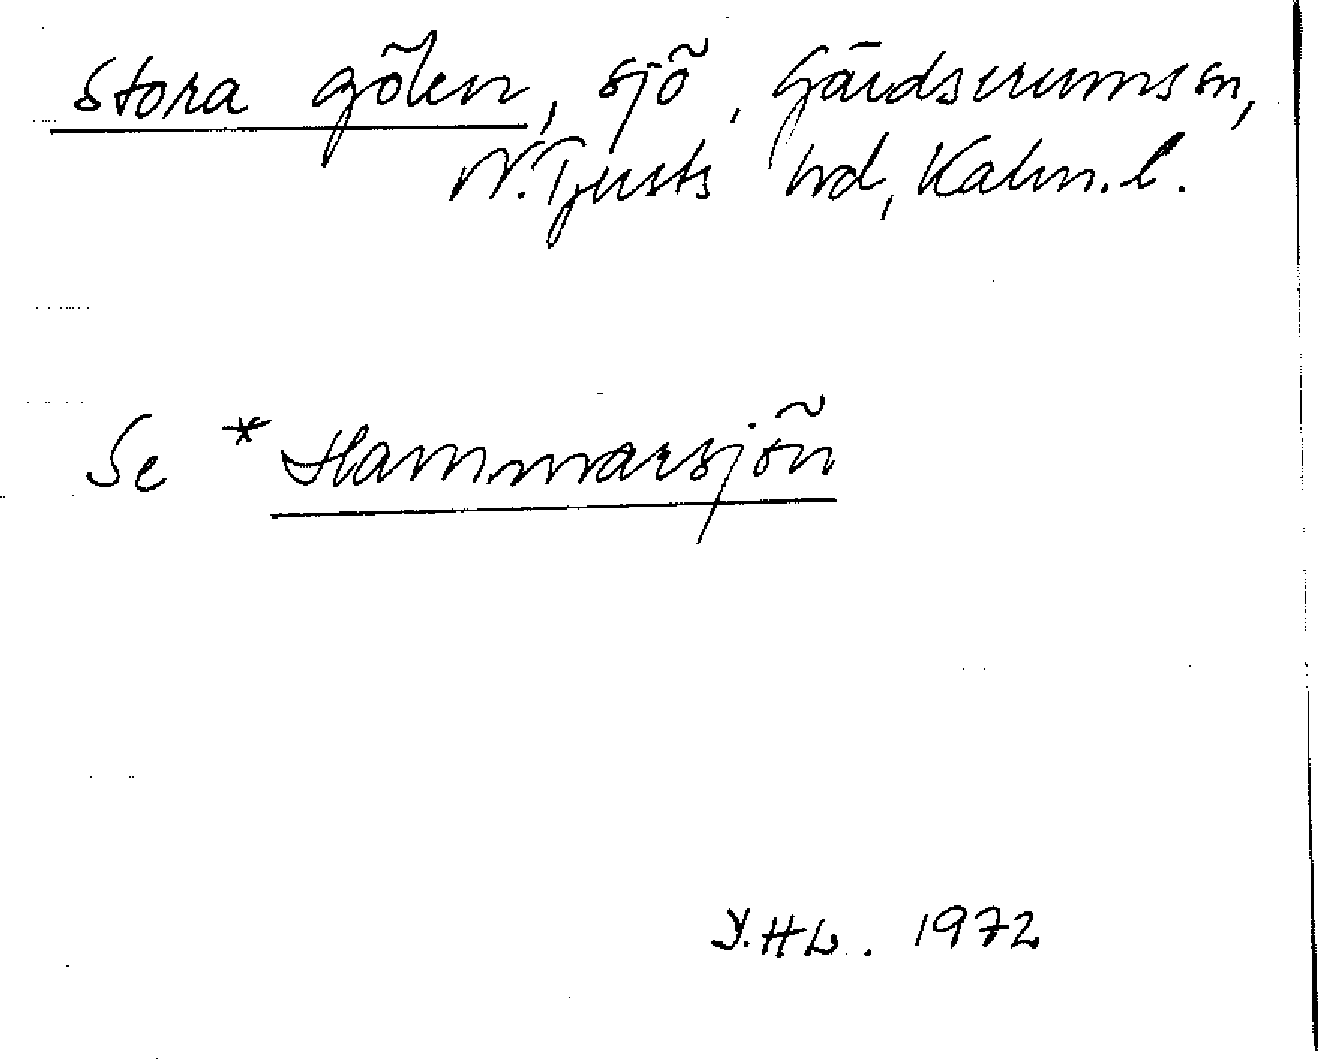 Stora gölen, sjö, Gärdserums sn,
N. Tjusts hd, Kalm. l.
Se *Hammarsjön
Y.HL. 1972